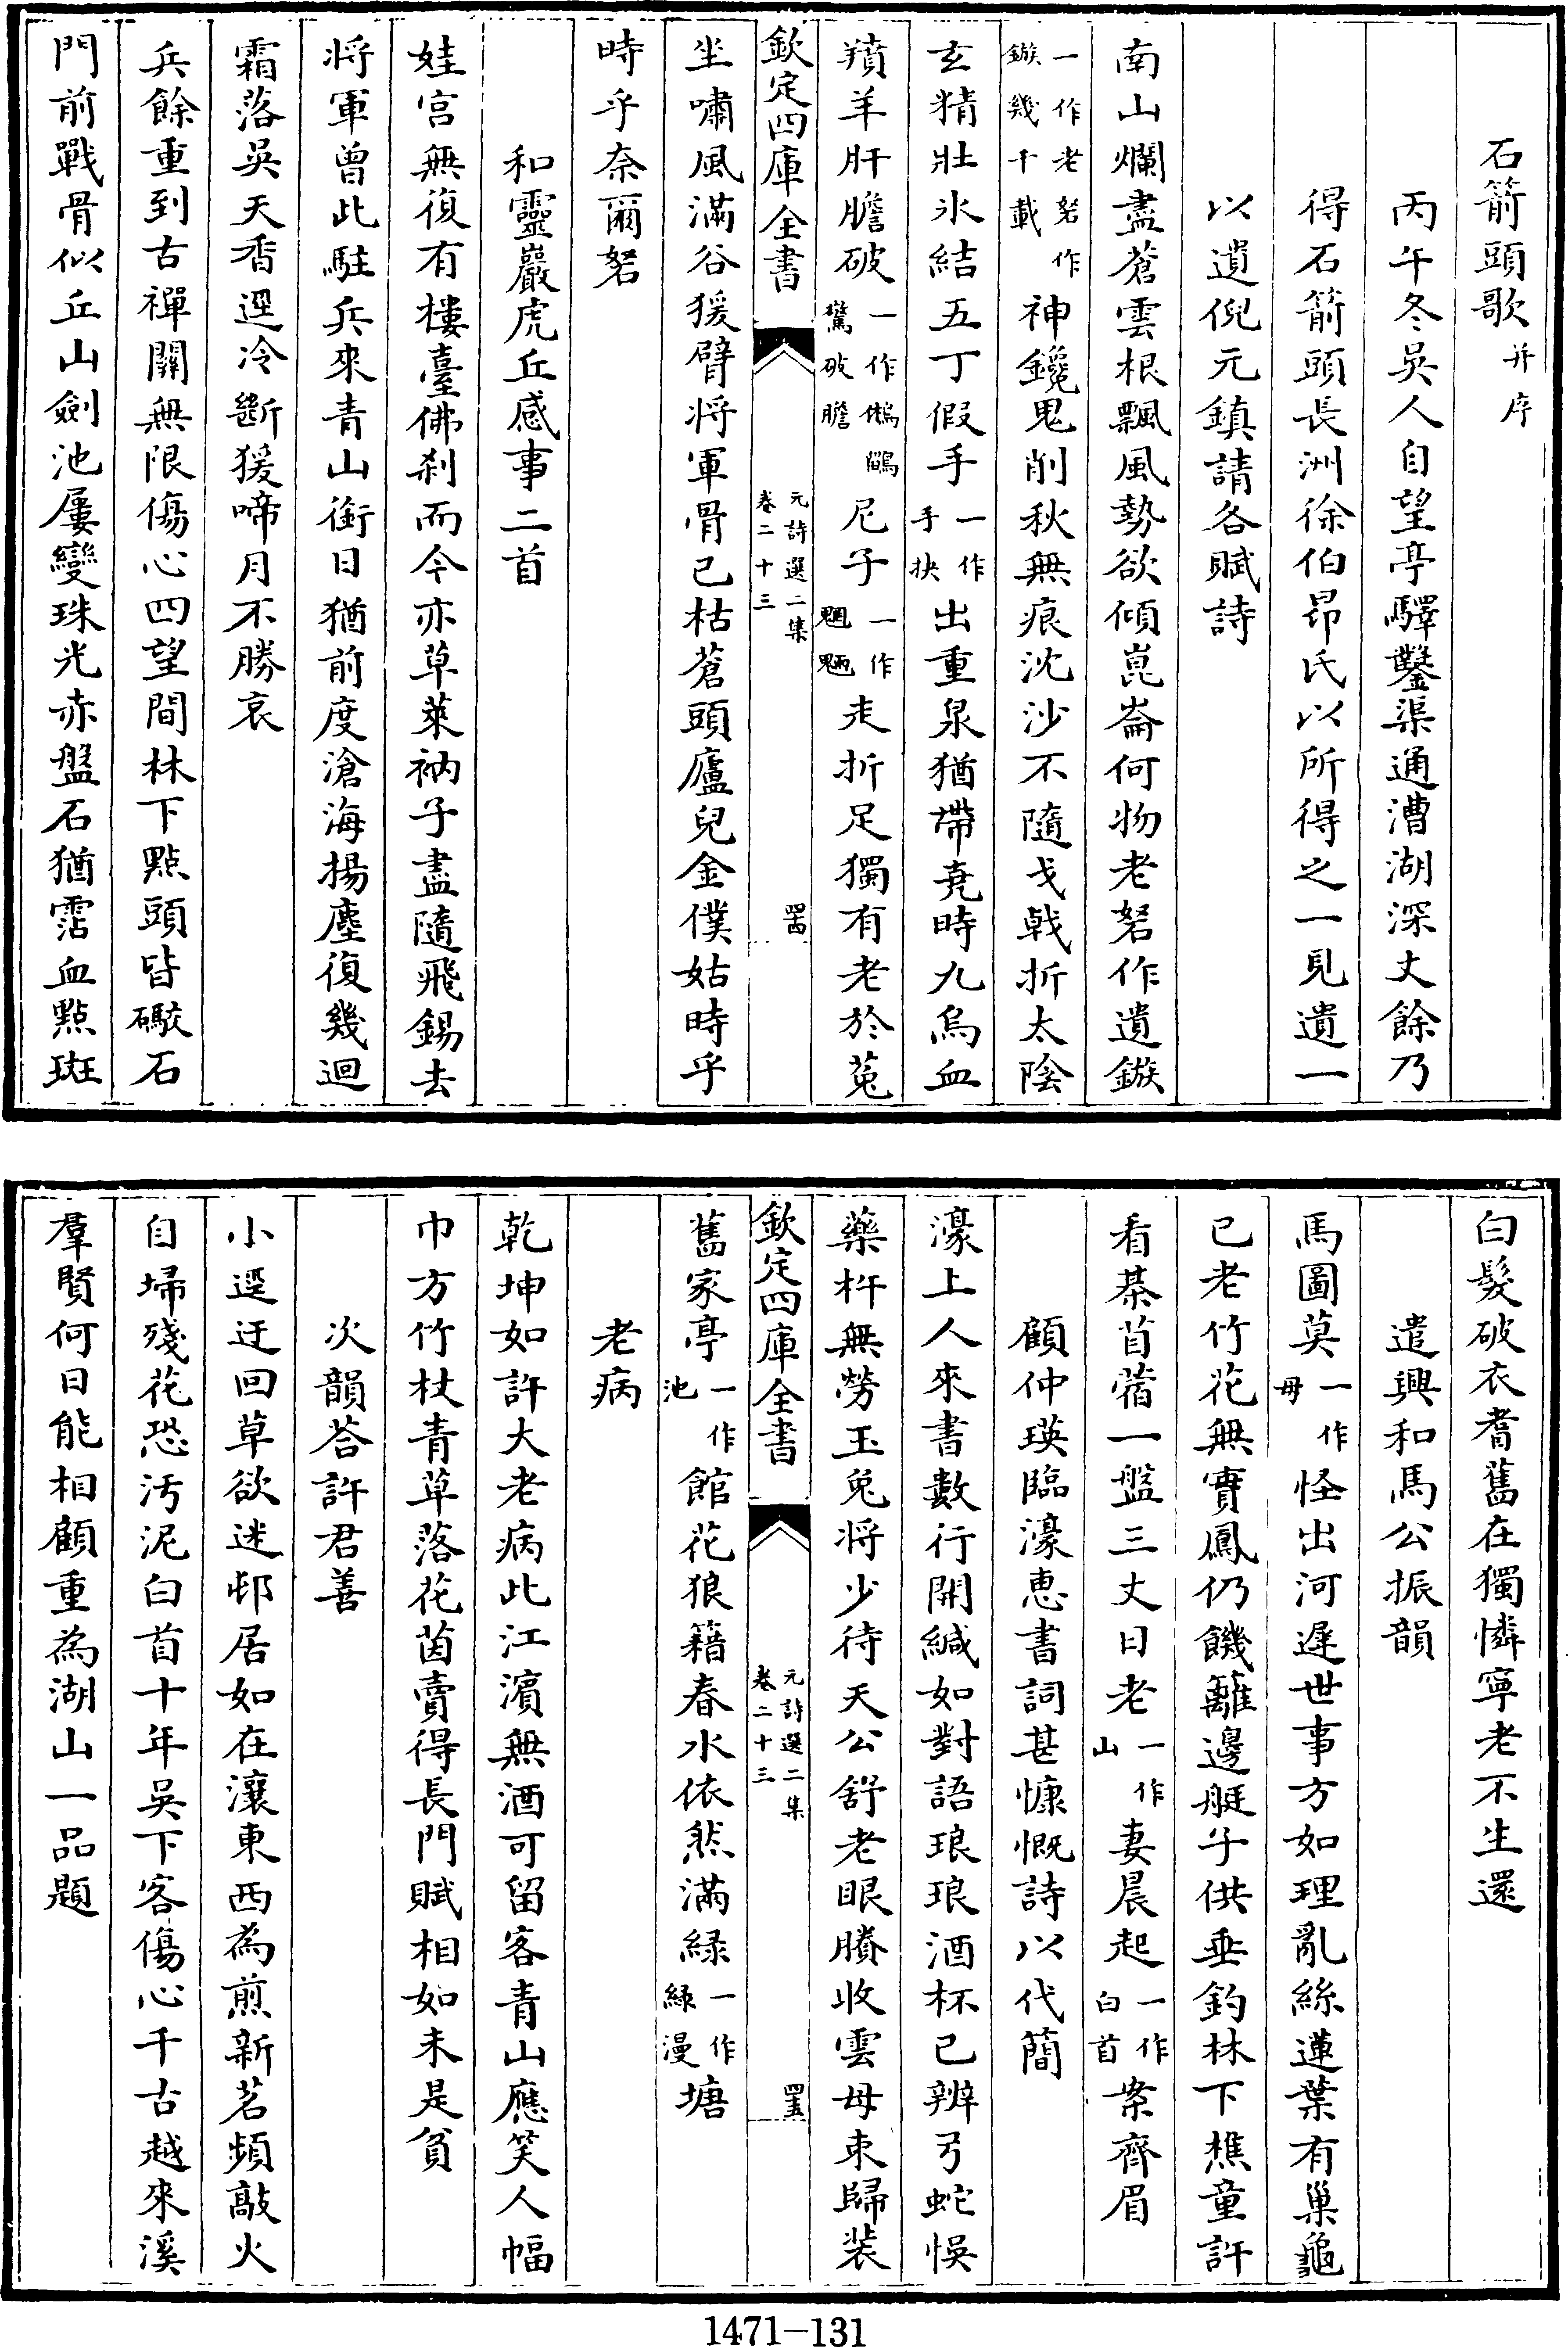 石箭頭歌并序
丙午冬吳人自望亭驛鑿渠通漕湖深丈餘乃
得石箭頭長洲徐伯昂氏以所得之一見遺一
以遺倪元鎮請各賦詩
南山爛盡蒼雲根飄風勢欲傾崑崙何物老砮作遺鏃
一作老砮作鏃幾千載神鑱鬼削秋無痕沈沙不隨戈戟折太陰
玄精壯氷結五丁假手一作手抉出重泉猶帶堯時九烏血
羵羊肝膽破一作鵂鶹驚破膽尼子一作魍魎走折足獨有老於菟
欽定四庫全書
元詩選二集
卷二十三
罒
坐嘯風滿谷猨臂將軍骨已枯蒼頭廬兒金僕姑時乎
時乎奈爾砮
和靈巖虎丘感事二首
娃宮無復有樓臺佛刹而今亦草萊衲子盡隨飛錫去
將軍曾此駐兵來青山銜日猶前度滄海揚塵復幾迴
霜落吳天香逕冷斷猨啼月不勝哀
兵餘重到古禪關無限傷心四望間林下點頭皆礮石
門前戰骨似丘山劍池屢變珠光赤盤石猶霑血點斑
白髮破衣耆舊在獨憐寧老不生還
遣興和馬公振韻
馬圖莫一作毋怪出河遲世事方如理亂絲蓮葉有巢龜
已老竹花無實鳳仍饑籬邊艇子供垂釣林下樵童許
看棊苜蓿一盤三丈日老一作山妻晨起一作白首案齊眉
顧仲瑛臨濠惠書詞甚慷慨詩以代簡
濠上人來書數行開緘如對語琅琅酒杯已辨弓蛇悞
藥杵無勞玉兎將少待天公舒老眼賸收雲母束歸裝
欽定四庫全書
元詩選二集
卷二十三
舊家亭一作池館花狼籍春水依然滿緑一作緑漫塘
老病
乾坤如許大老病此江濱無酒可留客青山應笑人幅
巾方竹杖青草落花茵賣得長門賦相如未是貧
次韻荅許君善
小逕迂回草欲迷邨居如在瀼東西為煎新茗頻敲火
自埽殘花恐汚泥白首十年吳下客傷心千古越來溪
羣賢何日能相顧重為湖山一品題
1471-131